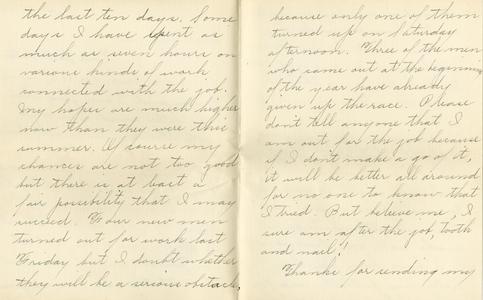 the last ten days. Some
days I have spent as
much as seven hours on
various kinds of work
connected with the job.
My hopes are much higher
now than they were this
summer. Of course my
chances are not too good
but there is at least a
fair possibility that I may
succeed. Four new men
turned out for work last
Friday but I doubt whether
they will be a serious obstacle,
because only one of them
turned up on Saturday
afternoon. Three of the men
who came out at the beginning
of the year have already
given up the race. Please
don't tell anyone that I
am out for the job because
if I don't make a go of it,
it will be better all around
for no one to know that
I tried. But believe me, I
sure am after the job, tooth
and nail!
Thanks for sending my